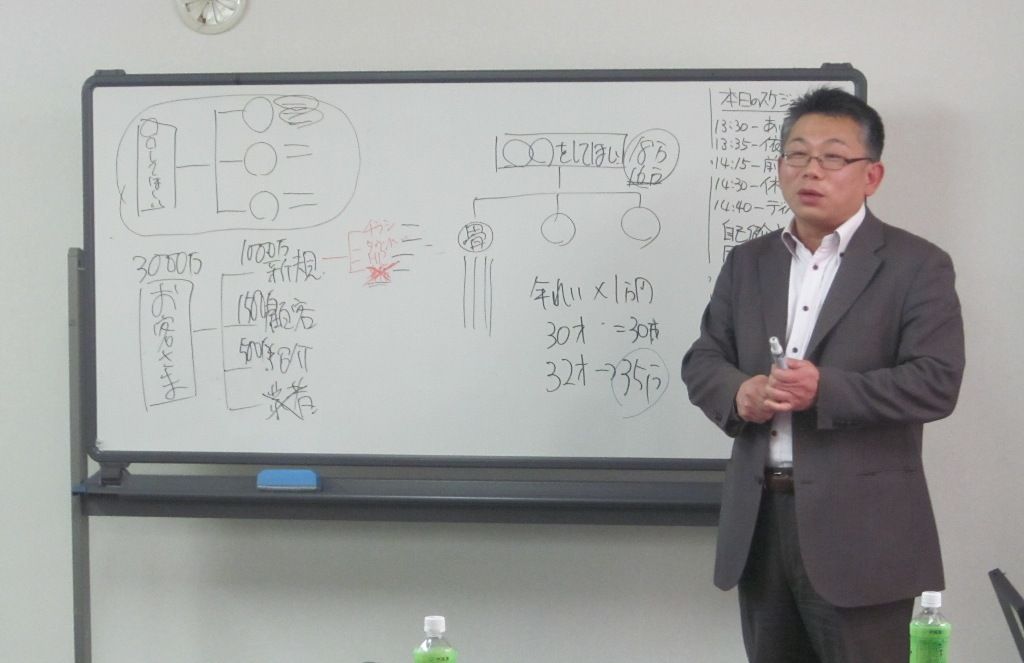 ○○してほしい
3000万
お客さま
1000万
新規
チラシ
1500
顧客
500
紹介
業者
○○をしてほしい
18万
16万
骨
年れい×1万円
30才 =30万
32才→35万
本日のスケジュ
13:30-あい
13:35-
14:15-前
14:30-休
14:40-ディ
自己紹介